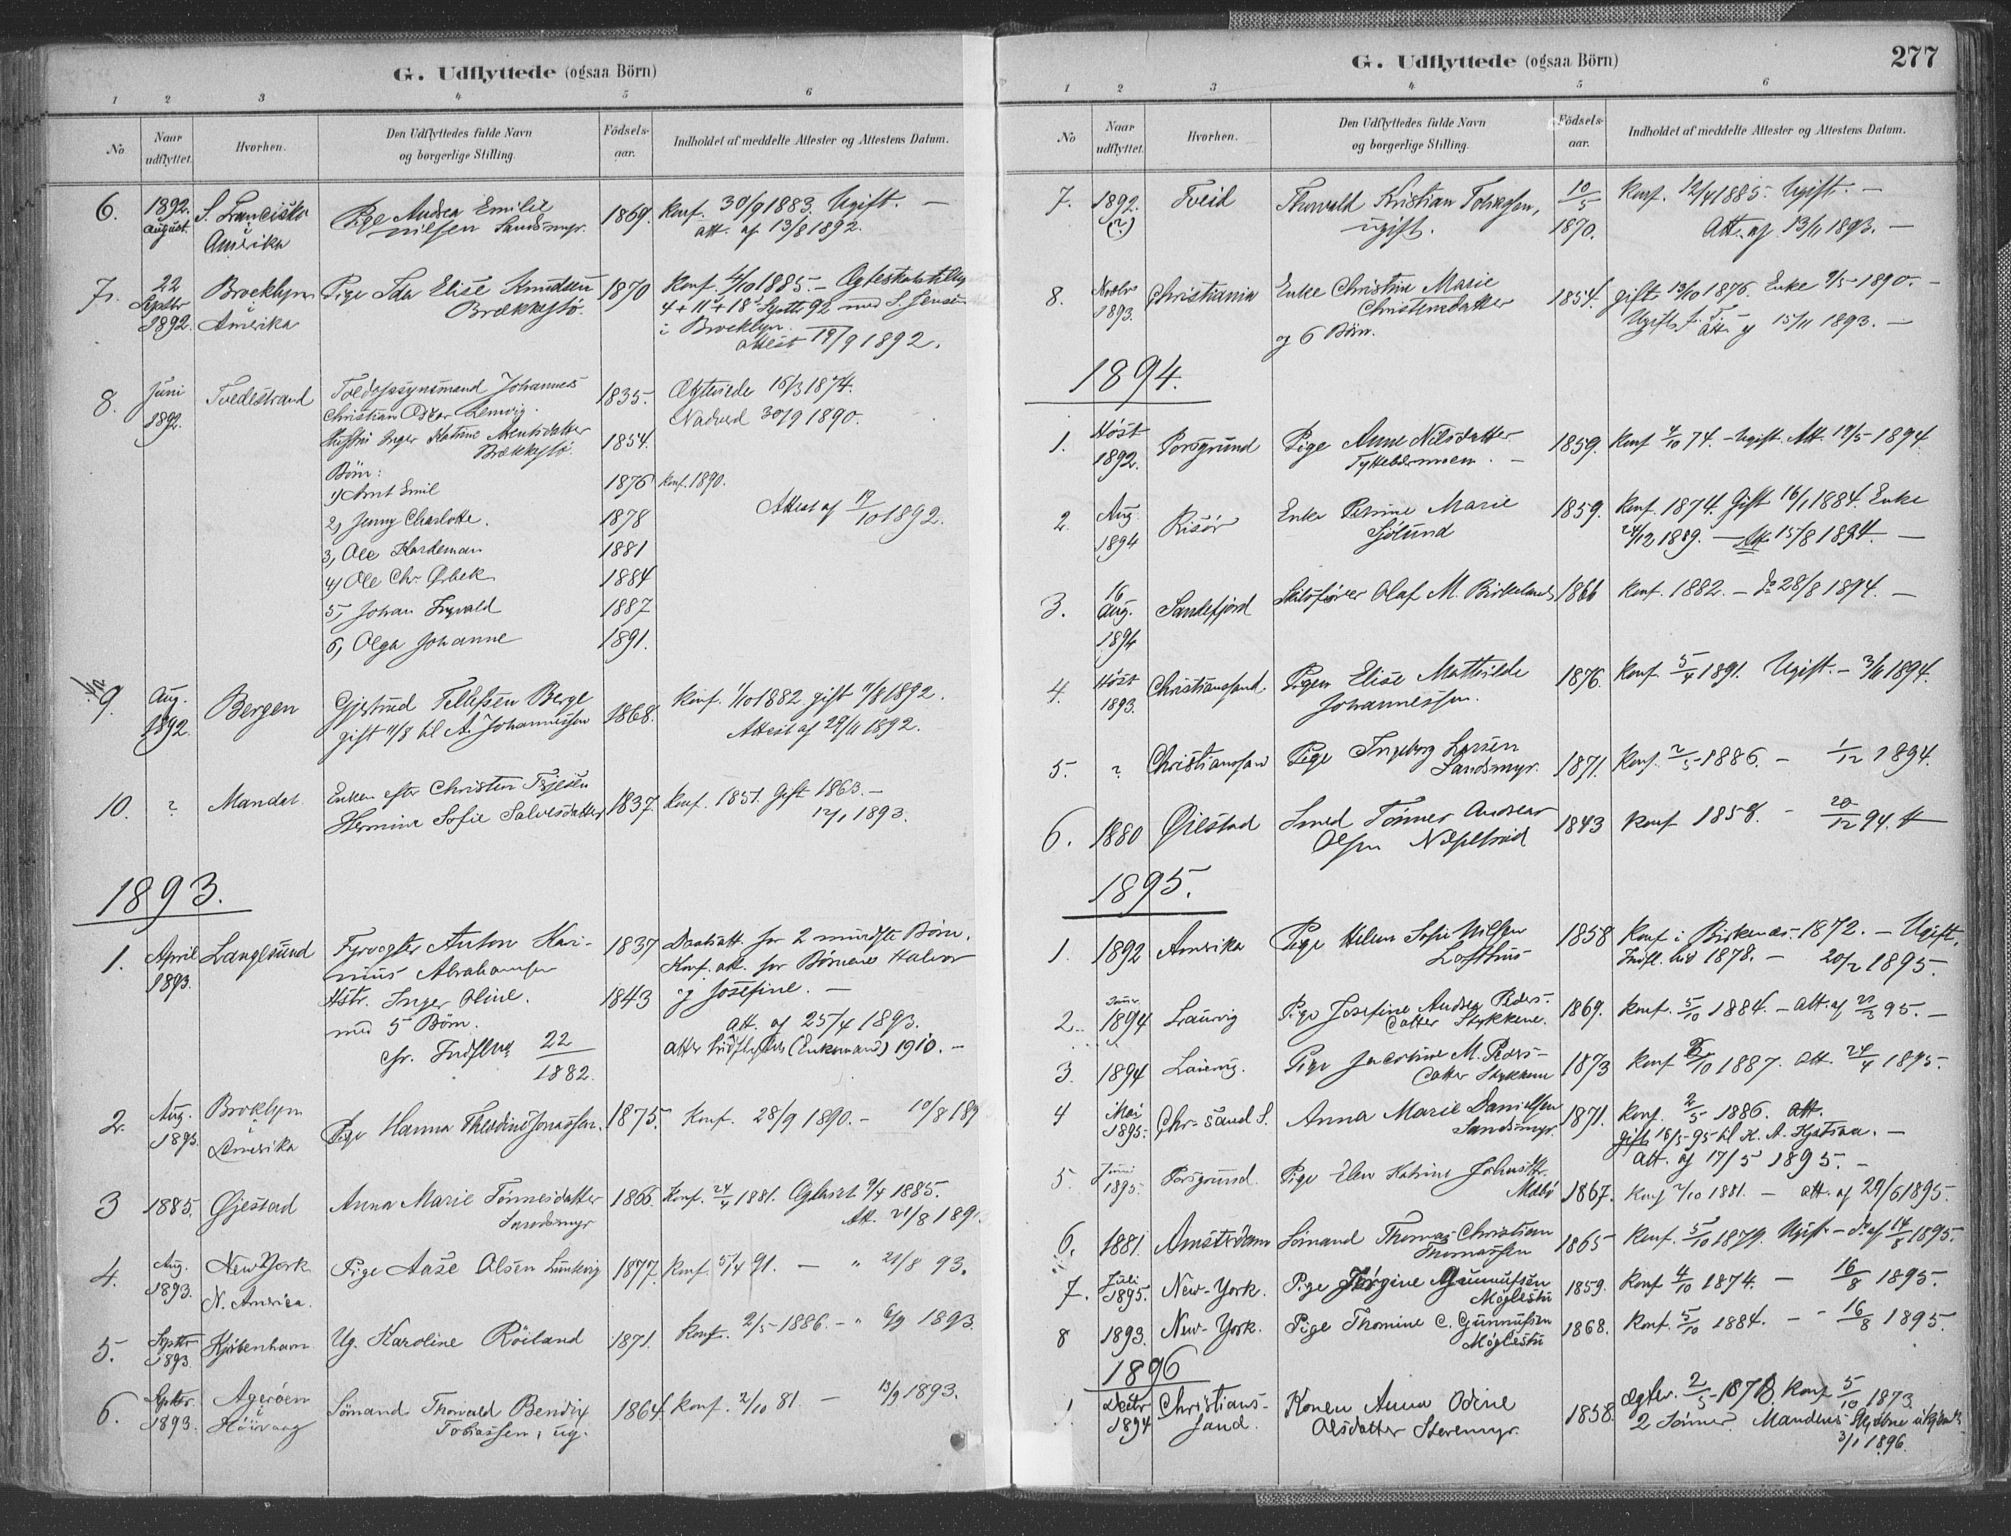 G. Udflyttede (ogsaa Börn)
1 2 3 4 5 6
No
Naar udflyttet.
Hvorhen.
Den Udflyttedes fulde Navn og borgerlige Stilling.
Födsels-aar.
Indholdet af meddelte Attester og Attestens Datum.
6. 1892. August. S. Francisko i Amerika Pige Andrea Emilie 1869. Konf. 30/9 1883. Ugift. —
Nilsen Sandsmyr. att. af 13/8 1892.
7. 22 Septbr 1892. Brooklyn Amerika Pige Ida Elise Knudsen 1870 Konf. 4/10 1885. —
Brækkestø. 4 + 11 + 18 Septbr 92 med
i Brooklyn.
attest 19/9 1892.
8. Juni 1892. Tvedestrand Toldopsynsmand Johannes 1835. Ægteviede 16/3 1874.
Christian Lemvig. Nadverd 30/9 1890.
Hustru Inger Katrine Arentsdatter 1854.
Brækkestø.
Börn:
1) Arnt Emil 1876 Konf. 1890.
2, Jenny Charlotte. 1878 Attest af 19/10 1892.
3, Ole Hardeman 1881
4) Ole Chr. Øbek 1884
5, Johan Trygvald 1887
6, Olga Johanne 1891.
9. Aug. 1892. Bergen Gjertrud Tellefsen Berge 1868. Konf. 1/10 1882 gift 11/8 1892.
gift 11/8 til A. Johannessen Attest af 29/11 1892.
10. ? Mandal Enken efter Christen 1837. Konf. 1851. Gift 1863. —
Hermine Sofie Salvesdatter 12/1 1893.
1893.
1. April 1893. Langesund Fyrvogter Anton Kari- 1837 Daabsatt. for 2 mindste Börn.
nius Abrahamsen Konf. att. for Börnene Halvor
Hstr. Inger Oline. 1843 og Josefine. —
med 5 Börn. att. af 25/4 1893.
cfr. Indflyt. 22/1882. atter Indflyttet (Enkemand) 1910. —
2. Aug. 1893. Broklyn i Amerika Pige Hanna Theodine Jonassen. 1875. Konf. 28/9 1890. — 10/8 189
3 1885. Øjestad Anna Marie Tönnesdatter 1866. Konf. 24/4 1881. 9/4 1885.
Sandsmyr Att. 21/8 189
4. Aug. 1893. New York N. America. Pige Aase Olsen 1877. Konf. 5/4 91. — " 21/8 93.
5. Septbr 1893. Kjöbenhavn Ug. Karoline Röiland 1871. Konf. 2/5 1886. — " 6/9 1893.
6. Septbr. 1893. Agerøen i Höivaag Sömand Thorvald Bendix 1864. Konf. 2/10 81. — 13/9 1893.
Tobiassen, ug.
G. Udflyttede (ogsaa Börn)
277
1 2 3 4 5 6
No
Naar udflyttet.
Hvorhen.
Den Udflyttedes fulde Navn og borgerlige Stilling.
Födsels-aar.
Indholdet af meddelte Attester og Attestens Datum.
7. 1892. (?) Tveid Thorvald Kristian Tobiassen, 10/5 1870. Konf. 12/4 1885. Ugift. —
ugift. Att. af 13/11 1893. —
8. Novbr 1893. Christiania Enke Christine Marie 1854. gift 13/10 1876. Enke 9/5 1890. —
Christensdatter Att. af 15/11 1893. —
og 6 Börn.
1894.
1. Höst 1892. Porsgrund Pige Anne Nilsdatter 1859. Konf 4/10 74. — Ugift. Att. 19/5 1894
Tyttebærmoen. —
2. Aug. 1894 Risör Enke Petrine Marie 1859. Konf. 1874. Gift 16/1 1884. Enke
Sjölund 24/12 1889. — Att. 15/8 1894. —
3. 16 Aug. 1894 Sandefjord Skibsförer Olaf M. Birkeland 1866 Konf. 1882. — do 28/8 1894. —
4. Höst 1893. Christianssand. Pigen Elise Mathilde 1876. Konf. 5/4 1891. Ugift. — 3/11 1894.
Johannessen.
5. ? Christianssand Pige Ingeborg Larsen 1871. Konf. 2/5 1886. — 1/12 1894.
Sandsmyr.
6. 1880 Øiestad Smed Tönnes Andreas 1843 Konf 1858. — 20/12 94.
Olsen
1895.
1. 1892 Amerika Pige Helene Sofie Nilsen 1858 Konf i Birkenæs 1872. — Ugift.
Lofthus Indfl. hid 1878. — 20/2 1895.
2. 1894 Laurvig Pige Josefine Andrea Peders- 1869. Konf. 5/10 1884. — Att. af 95. —
datter Stykkene.
3. 1894 Laurvig. Pige Jacobine M. Peders- 1873 Konf 1887. Att. 24/4 1895.
datter Stykkene
4 Mai 1895. Chr-sand S. Anna Marie Danielsen 1871. Konf. 2/5 1886. Att.
Sandsmyr. gift 16/5 95 til K. A. Kjetsaa. —
Att. af 17/5 1895. —
5. Juni 1895. Porsgrund. Pige Elen Katrine Johnsdtr
Molbö 1867. Konf 2/10 1881. — Att. af 29/6 1895.
6. 1881. Amsterdam Sömand Thomas Christian 1865 Konf. 5/10 1879. Ugift — do af 14/8 1895.
Thomassen
7. Juli 1895. New-York. Pige Jörgine Gunnufsen 1859. Konf 4/10 1874. — 16/8 1895.
Møglestu
8 1893. New-York. Pige Thomine C. Gunnufsen 1868. Konf. 5/10 1884. — 16/8 1895.
Møglestu
1896
1. Decbr 1894 Christians-sand. Konen Anna Odine 1858. Ægtev. 2/5 1878 Konf 5/10 1873.
Olsdatter Steremyr. 2 Sönner. Mandens
3/1 1896.